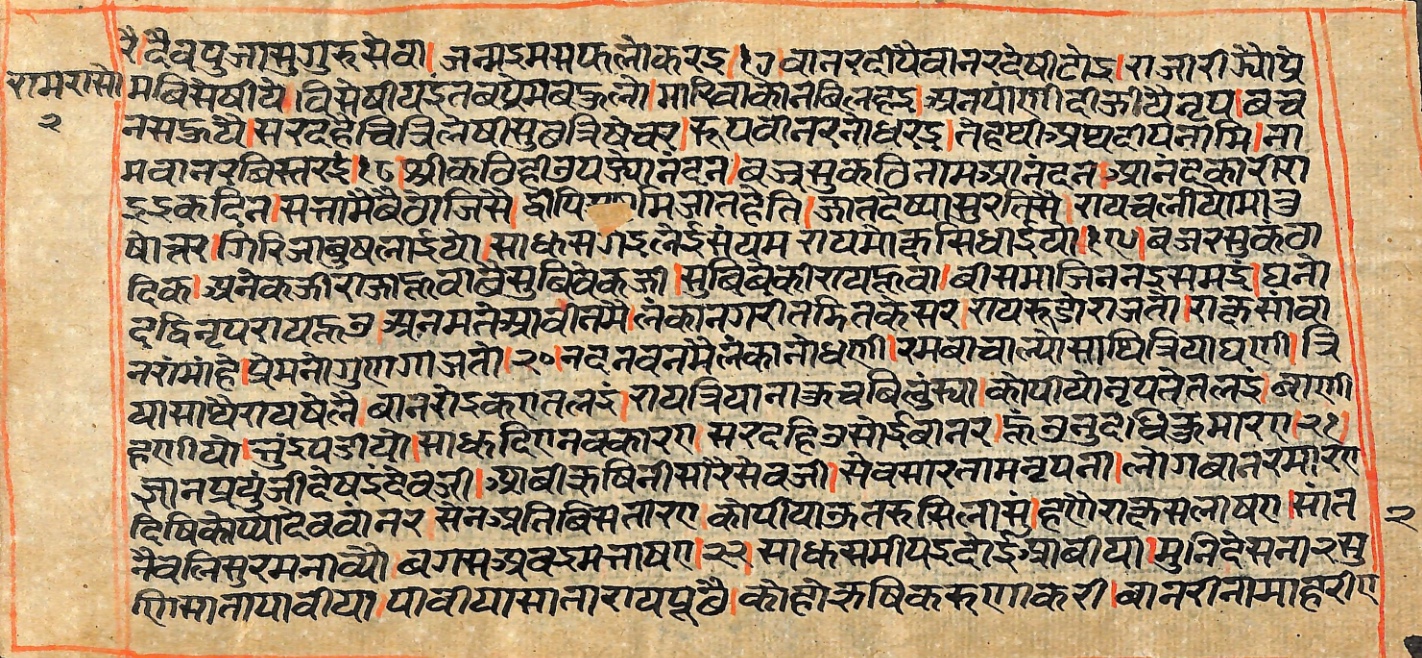 रै।देवपुजासुगुरुसेवा।जन्मइमसफलोकरइ।१७।वानरदीपैवानरदेषीदोइ।राजारीज्योप्रे
रामरासो
२
मबिसेषीये।विसेषीयइंतबप्रेमबऊलो।मारिवाकोनबिलहइ।अनपांणीदीऊीयैनृप।बच
नसऊयै।सरदहैचित्रिलेषीसुठत्रिषेचर।रूपवांनरनोधरइ।तेहथीअथदीपनामि।ना
मवानरबिस्तरइं।१८।श्रीकंठिहीउपज्यानंदन।बज्रसुकंठिनामआनंदन।आनंदकारीरा
इइकदिन।सनामैबैठाजिसै।दीपि
मिजातहेति।जातदेष्यासुरतिसै।रायचलीयामांउ
षोत्तर।गिरिजाबुषलाईयो।साधसगइलेईसंयम।रायमोक्षसिधाईयो।१९।बजरसुकंठा
दिक।अनेकऊीराजाऊवाछैसुबिबेकजी।सुबिबेकीरायऊवा।बीसमाजिननइसमइं।घनो
दधिनृपरायऊउ।अनमतंआवीनमै।लंकानगरीतडितकेसर।रायरूडोराजतो।राक्षसांवा
नरांमांहे।प्रेमनोगुणगाजतो।२०।नदनवनमैलंकानोधणी।रमबाचाल्योसाथित्रियाघणी।त्रि
यासाथैरायषेलै।बानरोइकएतलइं।रायत्रियानाऊचबिलुंस्या।कोपीयोनृपतेतलइं।बाणी
हणीयो।नुंइपडीयो।साधदिएनवकारए।सरदहिउसोईबानर।ऊउनुदधिकुमारए।२१।
ज्ञानप्रयुंजीदेषइंदेवजी।आवीऋषिनीसारेसेवजी।सेवसारनामनृपना।लोगबानरमारए
दिषिकोप्योदेववांनर।सेनअतिबिसतारए।कोपीयाऊतरुसिलासुं।हणैराक्षसलाषए।सांत
२
नैवलिसुरमनाव्यौ।बगसअवइमनाषए।२२।साधसमीपइदोईआवीया।मुनिदेसनारसु
णिसातापावीया।पावीयासातारायपूछै।कोहोऋषिकरुणाकरी।बानरीनामाहरीए